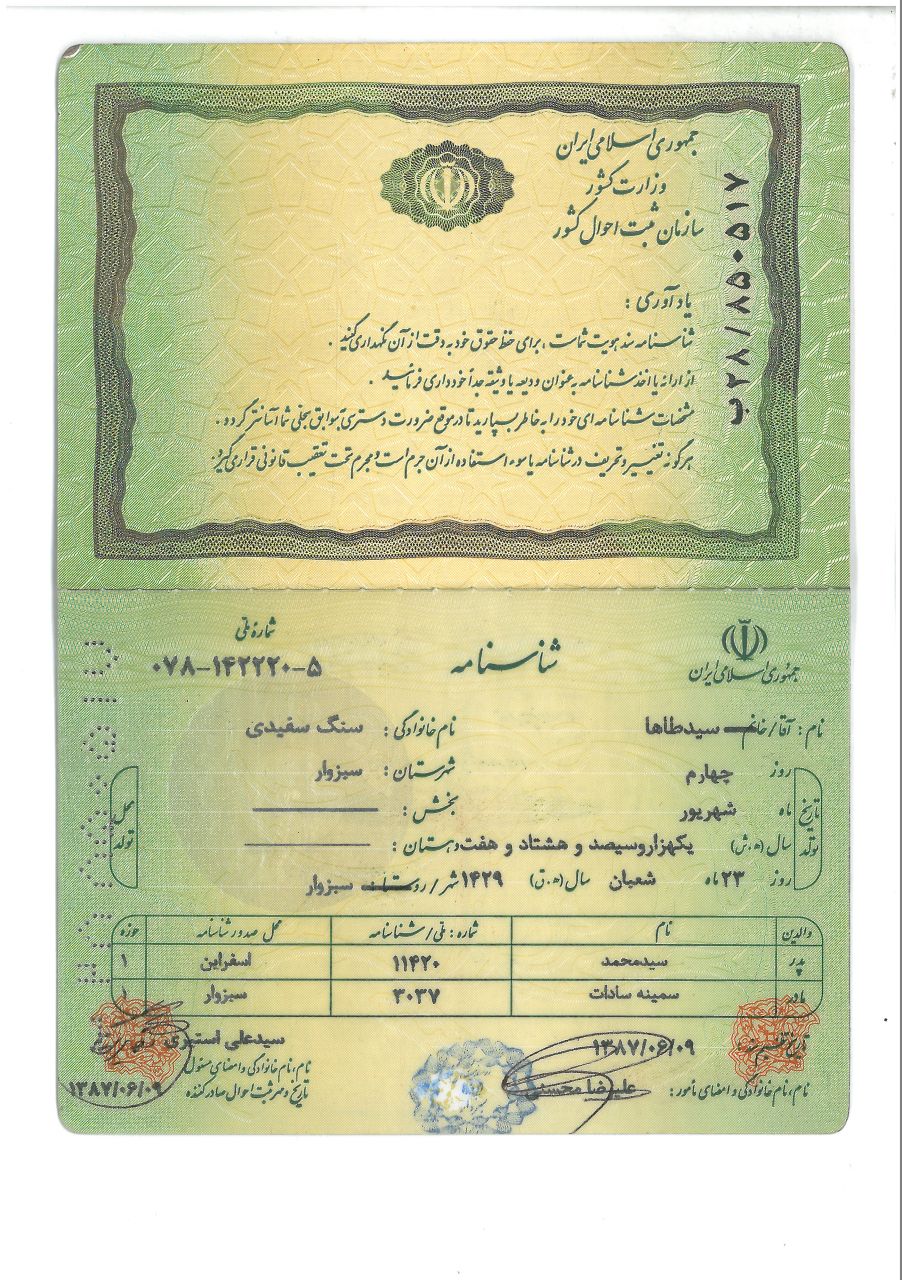 جمهوری اسلامی ایران
وزارت کشور
سازمان ثبت احوال کشور
ب۲۸/۸۵۰۵۱۷
یادآوری :
شناسنامه سند هویت شماست ، برای حفظ حقوق خود به دقت از آن نگهداری کنید .
از ارائه یا اخذ شناسنامه به عنوان ودیعه یا وثیقه جداً خودداری فرمائید .
مشخصات شناسنامه ای خود را به خاطر بسپارید تا در موقع ضرورت دسترسی به سوابق سجلی شما آسانتر گردد .
هرگونه تغییر و تحریف در شناسنامه یا سوء استفاده از آن جرم است و مجرم تحت تعقیب قانونی قرار می گیرد .
جمهوری اسلامی ایران
شناسنامه
شماره ملی
۰۷۸-۱۴۲۲۲۰-۵
نام : آقا/خانم سیدطاها نام خانوادگی : سنگ سفیدی
تاریخ تولد
روز چهارم شهرستان : سبزوار
ماه شهریور بخش :
سال (ه.ش) یکهزاروسیصد و هشتاد و هفت دهستان :
روز ۲۳ ماه شعبان سال (ه.ق) ۱۴۲۹ شهر/روستا : سبزوار
محل تولد
والدین نام شماره : ملی/شناسنامه محل صدور شناسنامه حوزه
پدر سیدمحمد ۱۱۴۲۰ اسفراین ۱
مادر سمینه سادات ۳۰۳۷ سبزوار ۱
تاریخ تنظیم سند ۱۳۸۷/۰۶/۰۹ سیدعلی استیری
نام، نام خانوادگی و امضای مأمور : علیرضا محسنی
نام، نام خانوادگی و امضای مسئول
تاریخ و مهر ثبت احوال صادرکننده ۱۳۸۷/۰۶/۰۹